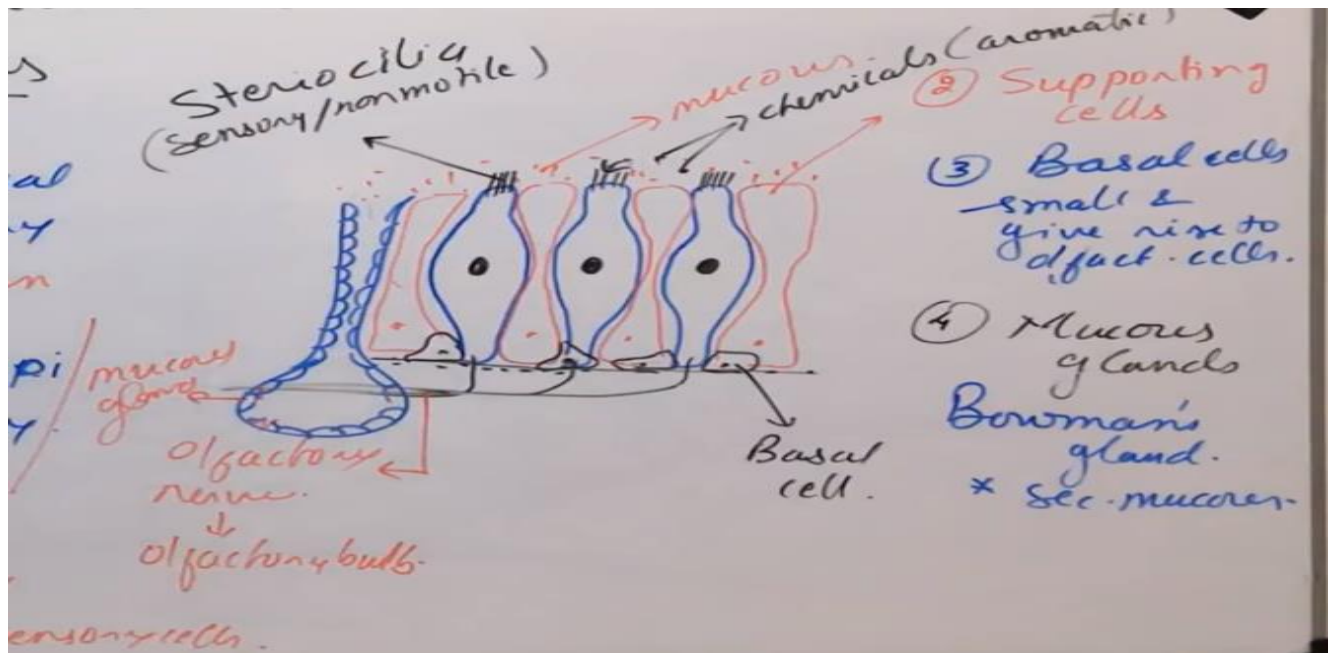 s
al
y
n
pi
y.
Steriocilia
(sensory/nonmotile)
mucous.
chemicals (aromatic)
② Supporting
cells
③ Basal cells
small &
give rise to
olfact. cells.
④ Mucous
glands
Bowman's
gland.
* sec. mucous.
mucous
gland
Olfactory
nerve.
Olfactory bulb.
Basal
cell.
ensory cells.